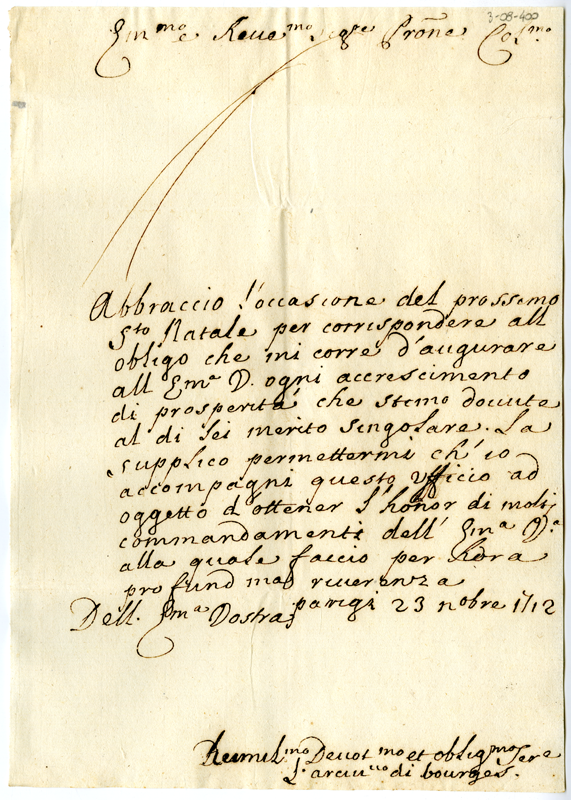 3-08-400
Em.mo e Reue.mo Sig.re Prõne Col.mo
Abbraccio l'occasione del prossemo
S.to Natale per corrispondere all
obligo che mi corre d'augurare
all Em.a V. ogni accrescimento
di prosperità che stemo douute
al di lei merito singolare. La
supplico permettermi ch'io
accompagni questo Vfficio ad
oggetto d'ottener l'honor di molti
commandamenti dell' Em.a V.a
alla quale faccio per hora
profund.ma riuerenza
Dell. Em.a Vostra parigi 23 nobre 1712
Humil.mo Deuot.mo et oblig.mo Sere
L'arciu.uo di bourges.